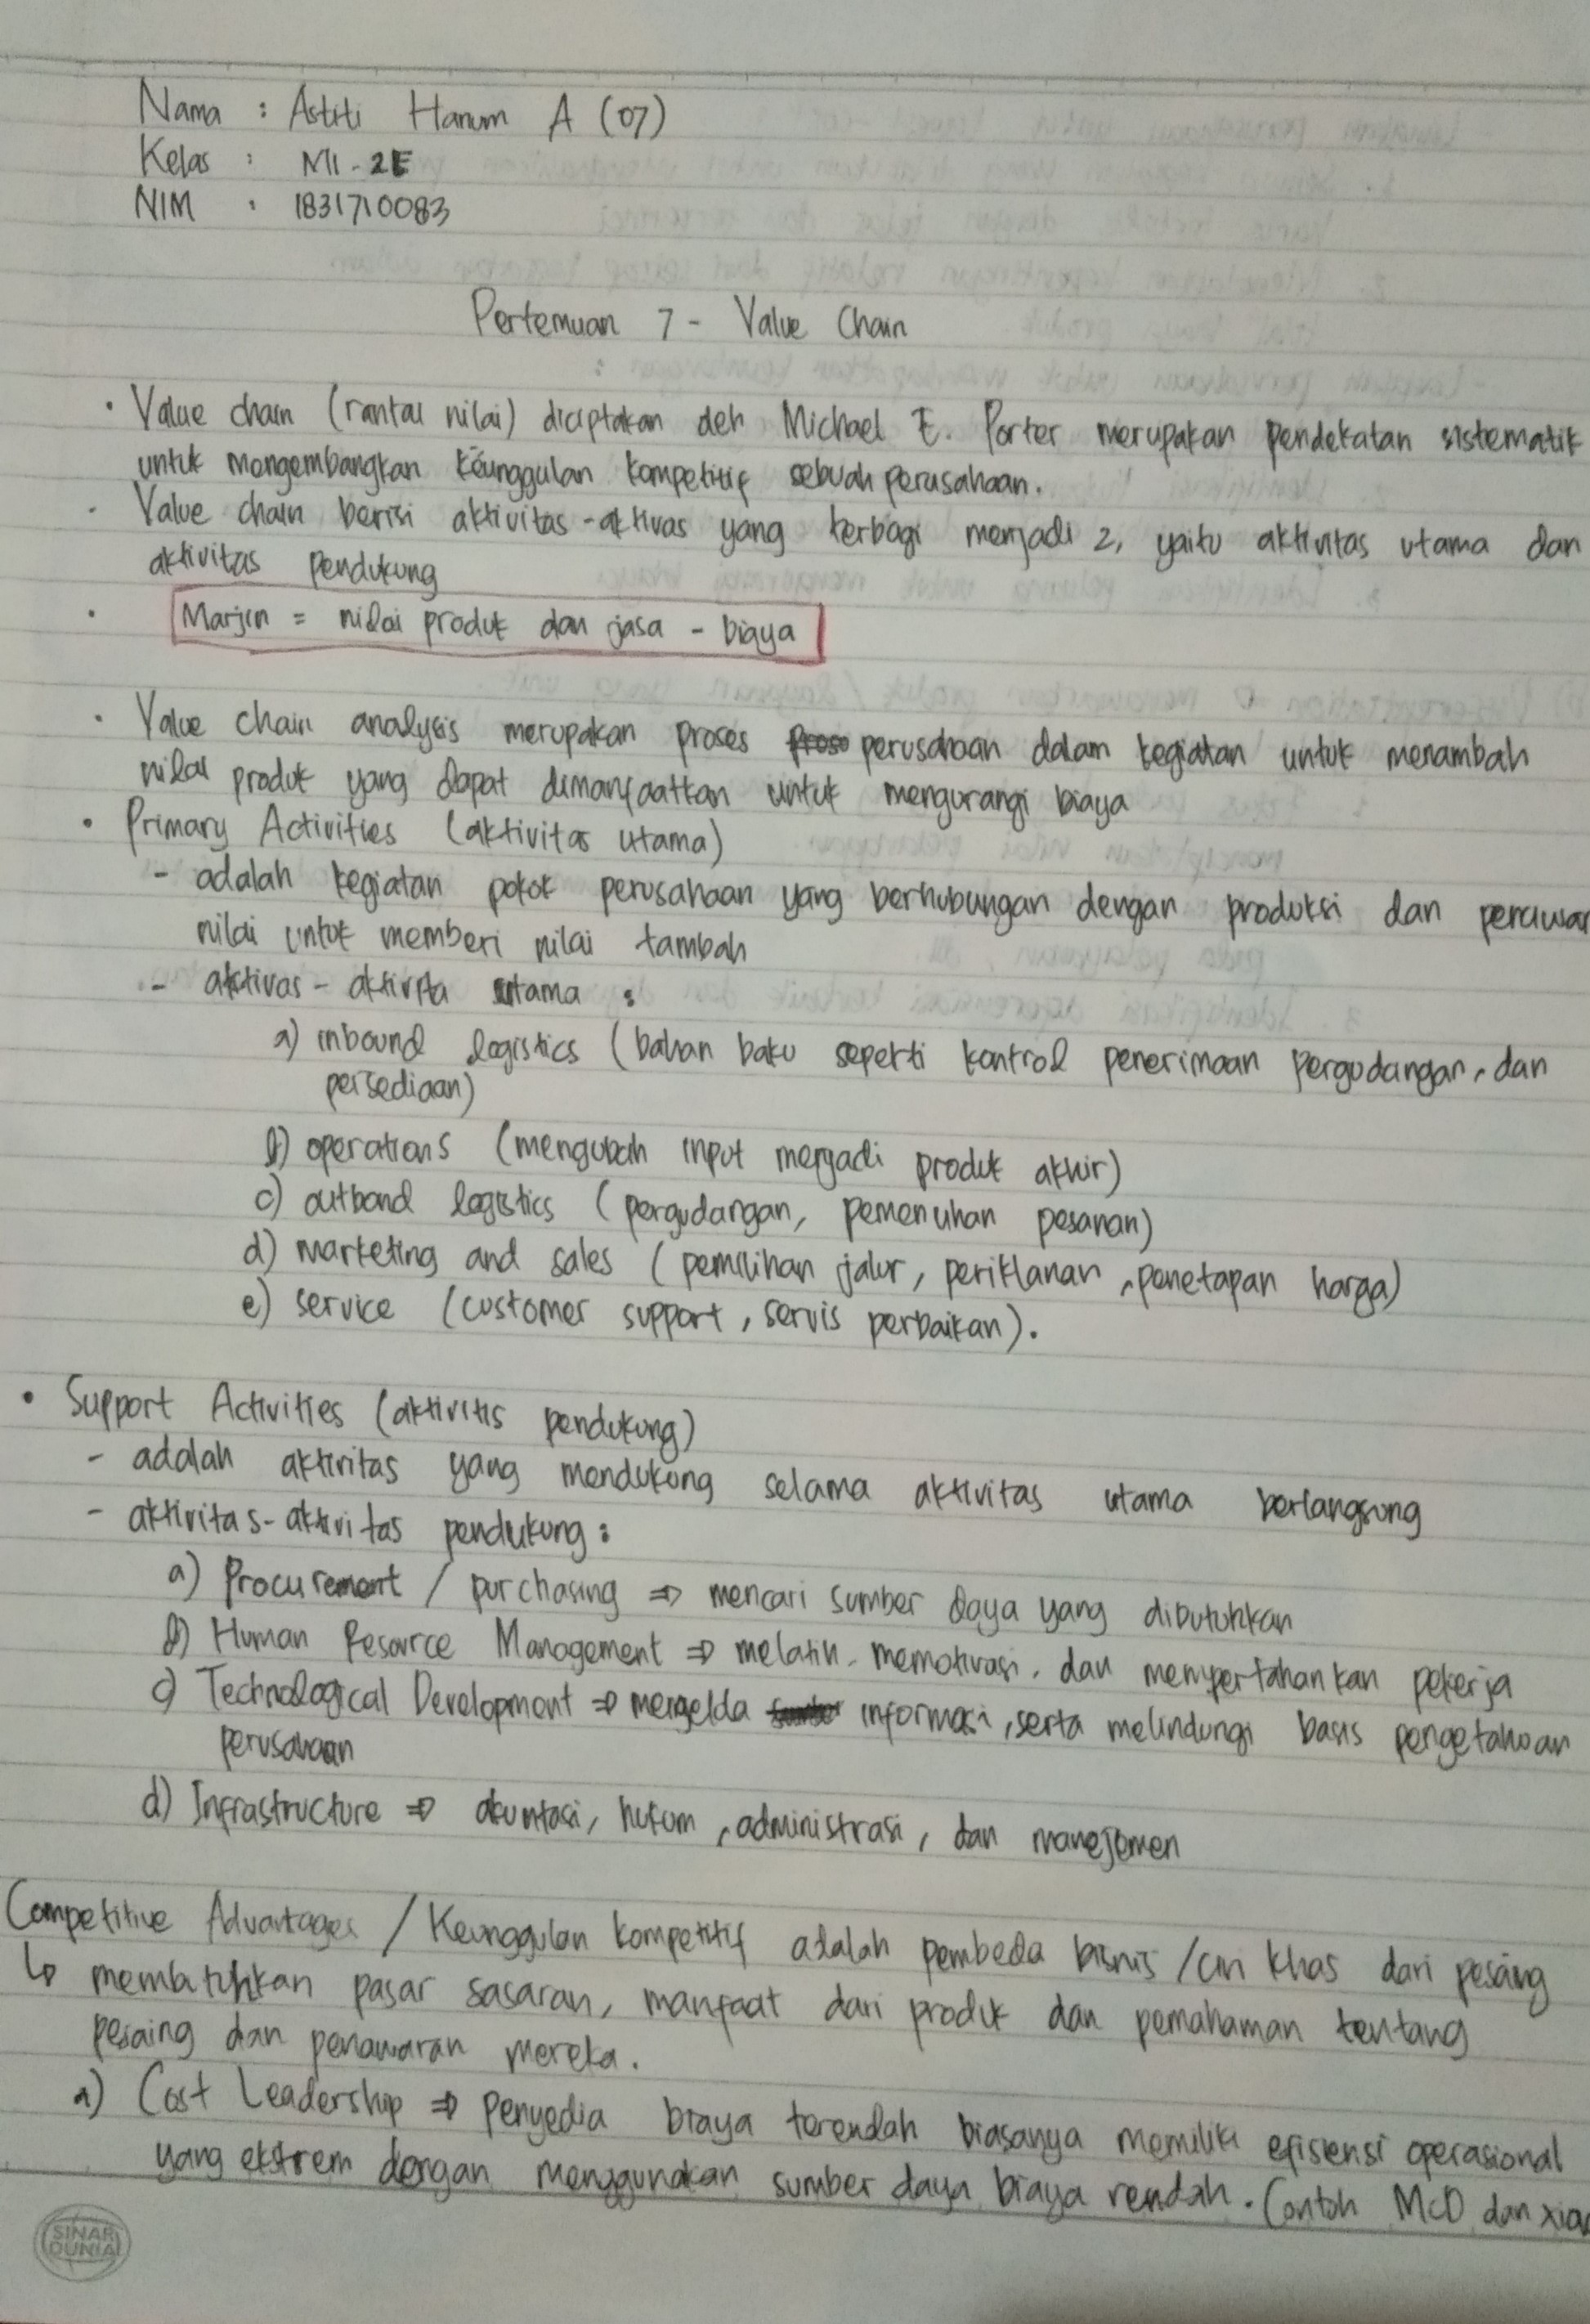 Nama : Astiti Hanum A (07)
Kelas : MI - 2E
NIM : 1831710083
Pertemuan 7 - Value Chain
• Value chain (rantai nilai) diciptakan oleh Michael E. Porter merupakan pendekatan sistematik
untuk mengembangkan keunggulan kompetitif sebuah perusahaan.
• Value chain berisi aktivitas-aktivas yang terbagi menjadi 2, yaitu aktivitas utama dan
aktivitas pendukung
• Marjin = nilai produk dan jasa - biaya
• Value chain analysis merupakan proses perusahaan dalam kegiatan untuk menambah
nilai produk yang dapat dimanfaatkan untuk mengurangi biaya
• Primary Activities (aktivitas utama)
- adalah kegiatan pokok perusahaan yang berhubungan dengan produksi dan penawar
nilai untuk memberi nilai tambah
- aktivas - aktivita utama :
a) inbound logistics (bahan baku seperti kontrol penerimaan pergudangan, dan
persediaan)
b) operations (mengubah input menjadi produk akhir)
c) outbond logistics (pergudangan, pemenuhan pesanan)
d) marketing and sales (pemilihan jalur, periklanan, penetapan harga)
e) service (customer support, servis perbaikan).
• Support Activities (aktivitis pendukung)
- adalah aktivitas yang mendukung selama aktivitas utama berlangsung
- aktivitas-aktivitas pendukung :
a) Procurement / purchasing ⇒ mencari sumber daya yang dibutuhkan
b) Human Resource Management ⇒ melatih, memotivasi, dan mempertahankan pekerja
c) Technological Development ⇒ mengelola informasi, serta melindungi basis pengetahuan
perusahaan
d) Infrastructure ⇒ akuntasi, hukum, administrasi, dan manejemen
Competitive Advantages / Keunggulan kompetitif adalah pembeda bisnis / ciri khas dari pesaing
↳ membutuhkan pasar sasaran, manfaat dari produk dan pemahaman tentang
pesaing dan penawaran mereka.
a) Cost Leadership ⇒ penyedia biaya terendah biasanya memiliki efisiensi operasional
yang ekstrem dengan menggunakan sumber daya biaya rendah. Contoh McD dan xiao
SINAR
DUNIA